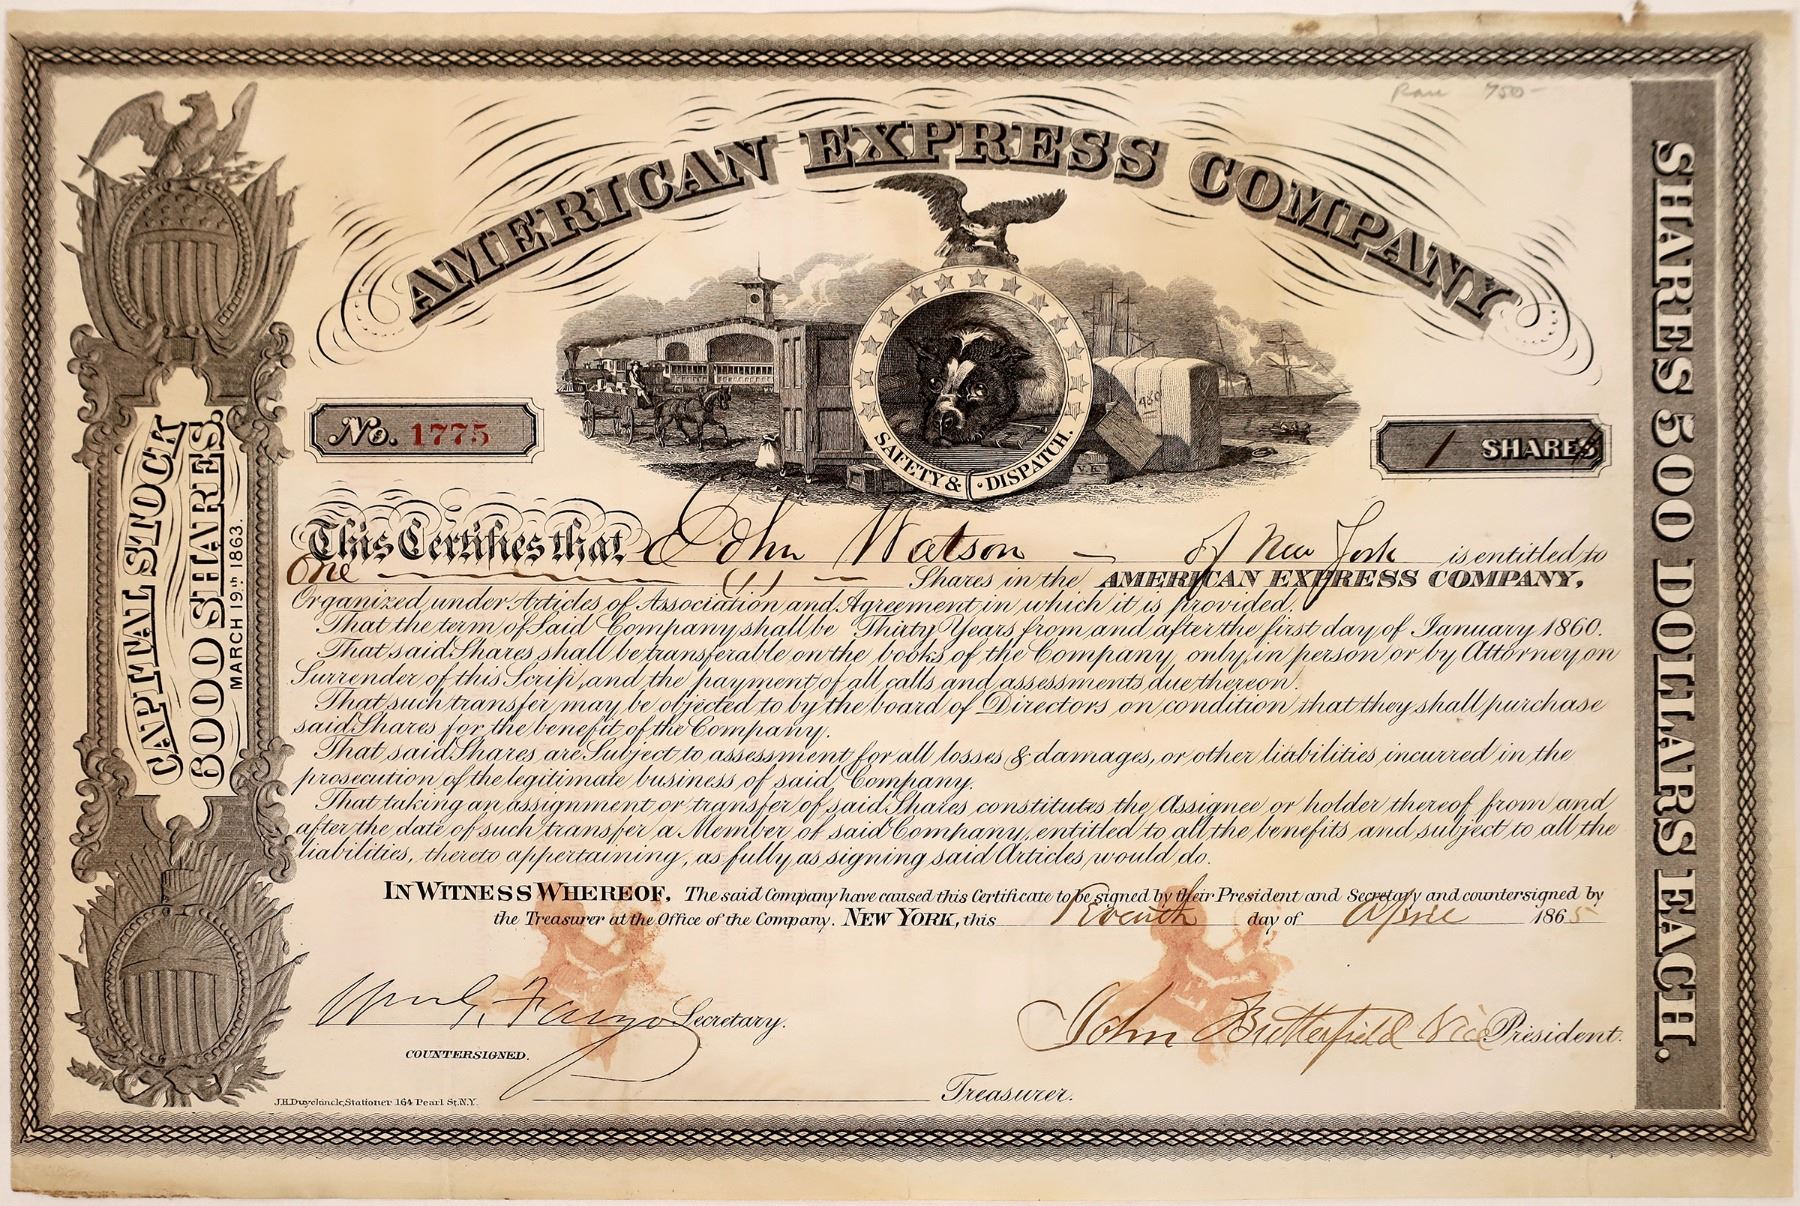 Rare 750-
AMERICAN EXPRESS COMPANY
SAFETY & DISPATCH.
480
V.R.
No. 1775
1 SHARES
CAPITAL STOCK
6000 SHARES.
MARCH 19th 1863.
SHARES 500 DOLLARS EACH.
This Certifies that John Watson — of New York is entitled to
One Shares in the AMERICAN EXPRESS COMPANY,
Organized under Articles of Association and Agreement in which it is provided.
That the term of Said Company shall be Thirty Years from and after the first day of January 1860.
That said Shares shall be transferable on the books of the Company, only in person or by Attorney on
Surrender of this Scrip, and the payment of all calls and assessments due thereon.
That such transfer may be objected to by the board of Directors on condition that they shall purchase
said Shares for the benefit of the Company.
That said Shares are Subject to assessment for all losses & damages, or other liabilities incurred in the
prosecution of the legitimate business of said Company.
That taking an assignment or transfer of said Shares constitutes the Assignee or holder thereof from and
after the date of such transfer a Member of said Company, entitled to all the benefits and subject to all the
liabilities, thereto appertaining, as fully as signing said Articles would do.
IN WITNESS WHEREOF. The said Company have caused this Certificate to be signed by their President and Secretary and countersigned by
the Treasurer at the Office of the Company. NEW YORK, this day of April 1865
Wm G. Fargo Secretary.
John Butterfield Vice President.
COUNTERSIGNED.
Treasurer.
J.H.Duyckinck, Stationer 164 Pearl St. N.Y.